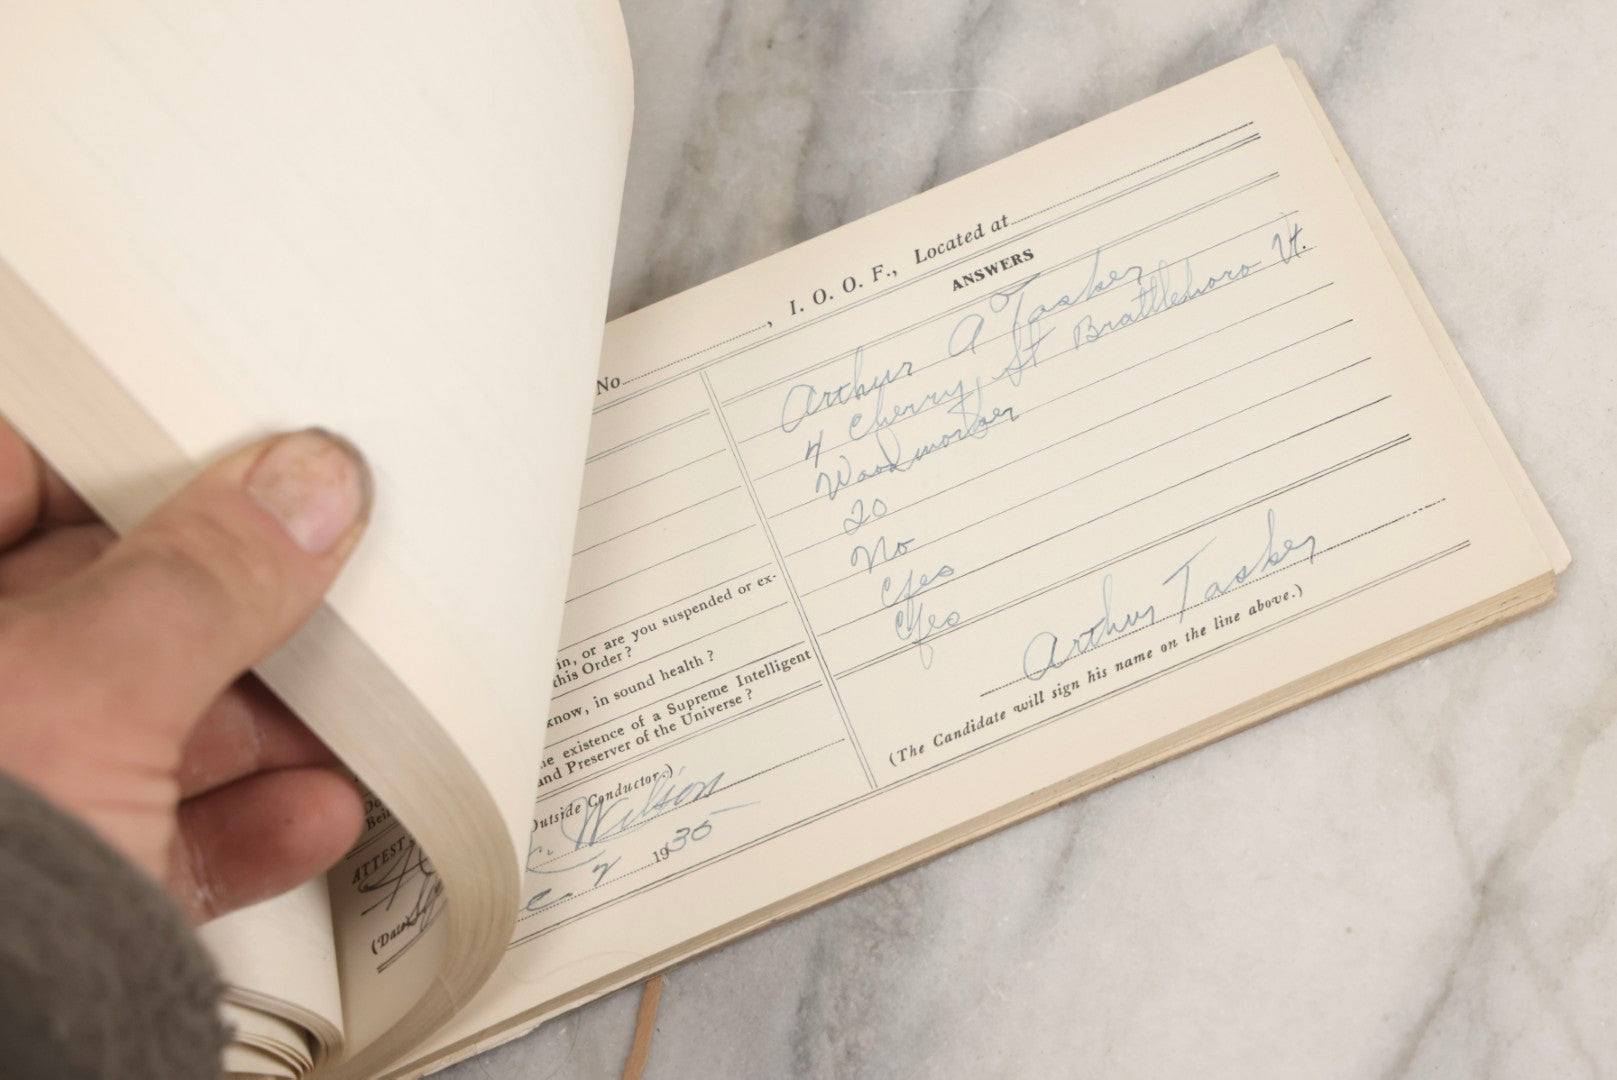 No , I. O. O. F., Located at
ANSWERS
Arthur A Tasker
4 Cherry St Brattleboro Vt.
Woodworker
20
No
Yes
Yes
in, or are you suspended or ex-
this Order?
know, in sound health?
existence of a Supreme Intelligent
and Preserver of the Universe?
Outside Conductor.)
Wilson
1935
Arthur Tasker
(The Candidate will sign his name on the line above.)
ATTEST
(Date